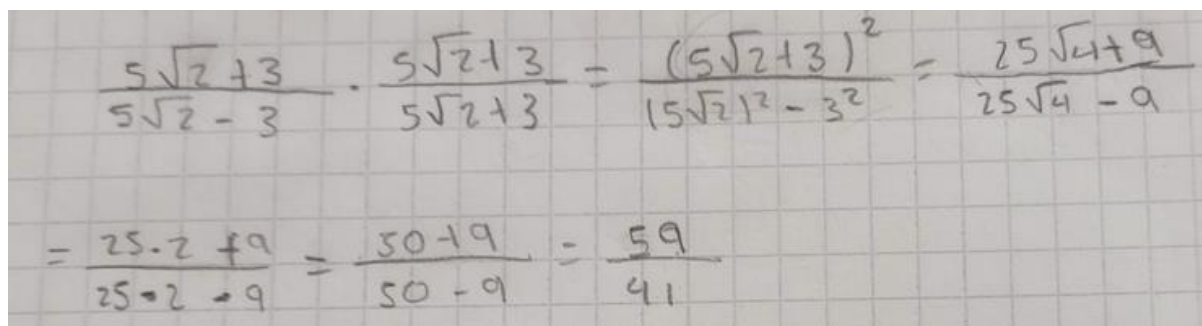 \frac{5\sqrt{2}+3}{5\sqrt{2}-3} \cdot \frac{5\sqrt{2}+3}{5\sqrt{2}+3} = \frac{(5\sqrt{2}+3)^2}{(5\sqrt{2})^2-3^2} = \frac{25\sqrt{4}+9}{25\sqrt{4}-9}
= \frac{25 \cdot 2+9}{25 \cdot 2-9} = \frac{50+9}{50-9} = \frac{59}{41}